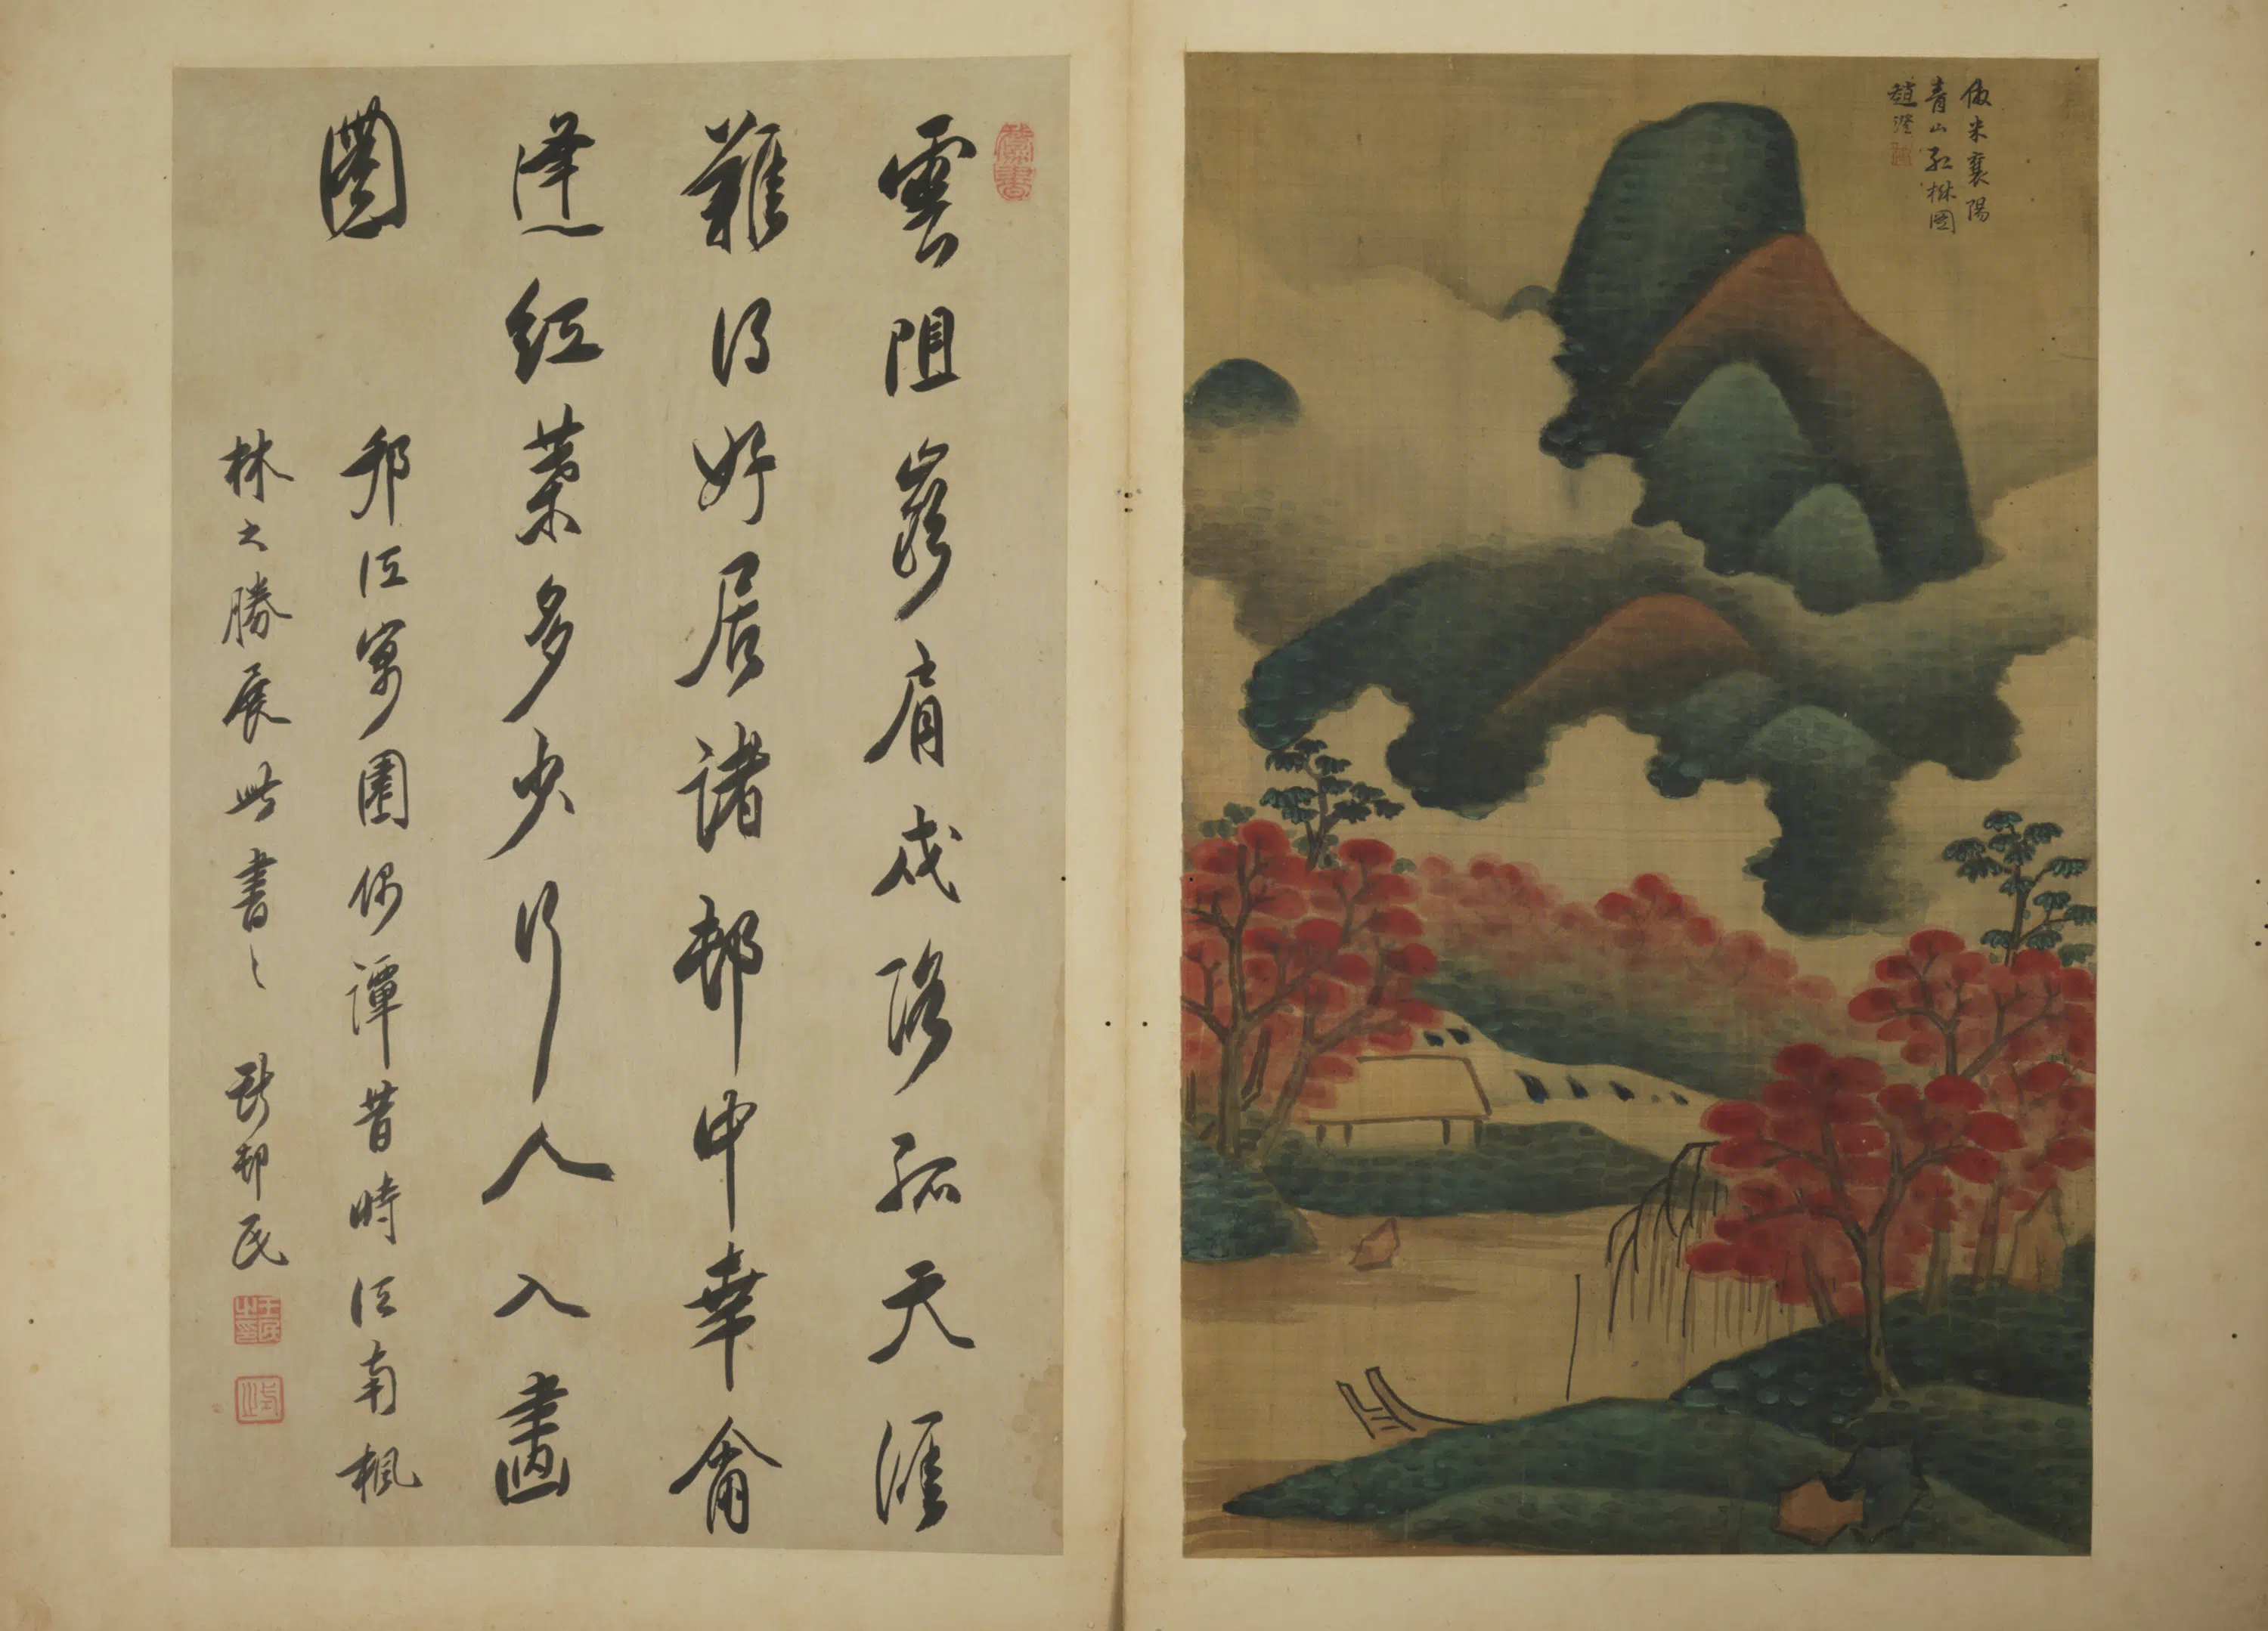 倣米襄陽
青山紅樹圖
趙澄
雲阻肩戍路孤天涯
難得好居諸邨中幸爾
逢紅葉多少行人入畫
圖
邗江寓園偶譚昔時江南楓
林之勝展此書之 邨民